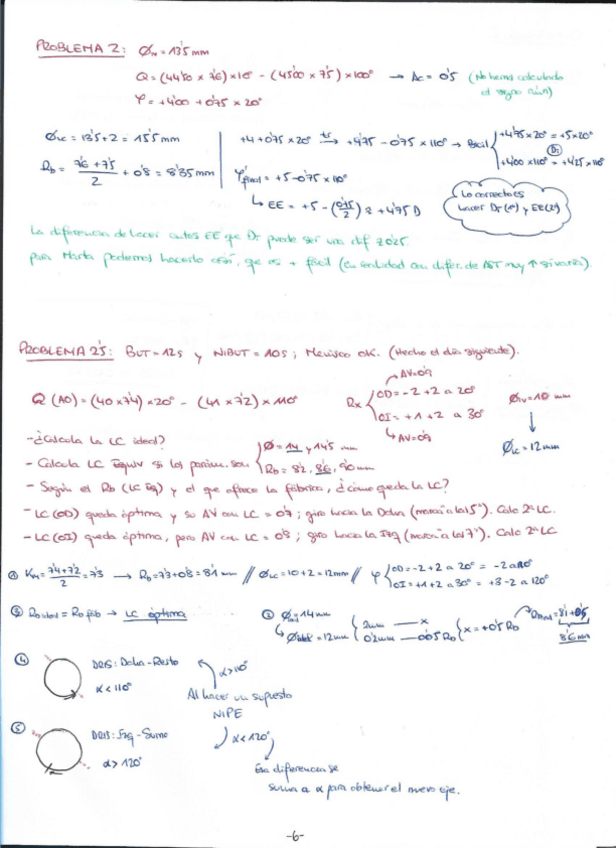 PROBLEMA 2: Øiv = 13'5 mm
Q = (44'50 x 7'6) x 10° - (45'00 x 7'5) x 100° → Ac = 0'5 (No hemos calculado el signo aún)
φ = +4'00 + 0'75 x 20°
ØLC = 13'5 + 2 = 15'5 mm
Rb = 7'6 + 7'5 / 2 + 0'8 = 8'35 mm
+4 + 0'75 x 20° → +4'75 - 0'75 x 110° → Bacil { +4'75 x 20° = +5 x 20°
+4'00 x 110° = +4'25 x 110°
φfinal = +5 - 0'75 x 110°
↳ EE = +5 - (0'75/2) ≈ +4'75 D
Lo correcto es hacer Dv (1º) y EE (2º)
La diferencia de hacer antes EE que Dv puede ser una dif ≈ 0'25.
para Marta podemos hacerlo así, que es + fácil (En realidad con difer. de AST muy ↑ si varía).
PROBLEMA 25: BUT = 12s y NIBUT = 10s ; Menisco OK. (Hecho el día siguiente).
Q (AO) = (40 x 7'4) x 20° - (41 x 7'2) x 110°
Rx { OD = -2 + 2 a 20° → AV = 0'9
OI = +1 + 2 a 30° → AV = 0'9
Øiv = 10 mm
↓
ØLC = 12 mm
- ¿Calcula la LC ideal?
- Calcula LC Equiv si los parám. son { Ø = 14 y 14'5 mm
Rb = 8'2, 8'6, 9'0 mm
- Según el Rb (LC Eq) y el que ofrece la fábrica, ¿cómo queda la LC?
- LC (OD) queda óptima y su AV con LC = 0'7 ; giro hacia la Dcha (marca a las 5"). Calc 2ª LC.
- LC (OI) queda óptima, pero AV con LC = 0'8 ; giro hacia la Izq (marca a las 7"). Calc 2ª LC
① Km = 7'4 + 7'2 / 2 = 7'3 → Rb = 7'3 + 0'8 = 8'1 mm // ØLC = 10 + 2 = 12 mm // φ { OD = -2 + 2 a 20° = -2 a 110°
OI = +1 + 2 a 30° = +3 - 2 a 120°
③ Rb ideal = Rb fáb → LC óptima
② Ø = 14 mm
↳ Ø = 12 mm { 2mm — x
0'2mm — 0'05 Rb { x = +0'5 Rb
→ Rb = 8'1 + 0'5
8'6 mm
④ DRIS: Dcha - Resto
α < 110°
α > 110°
Al hacer un supuesto
NIPE
⑤ DRIS: Izq - Sumo
α > 120°
α < 120°
Esa diferencia se
suma a α para obtener el nuevo eje.
-6-